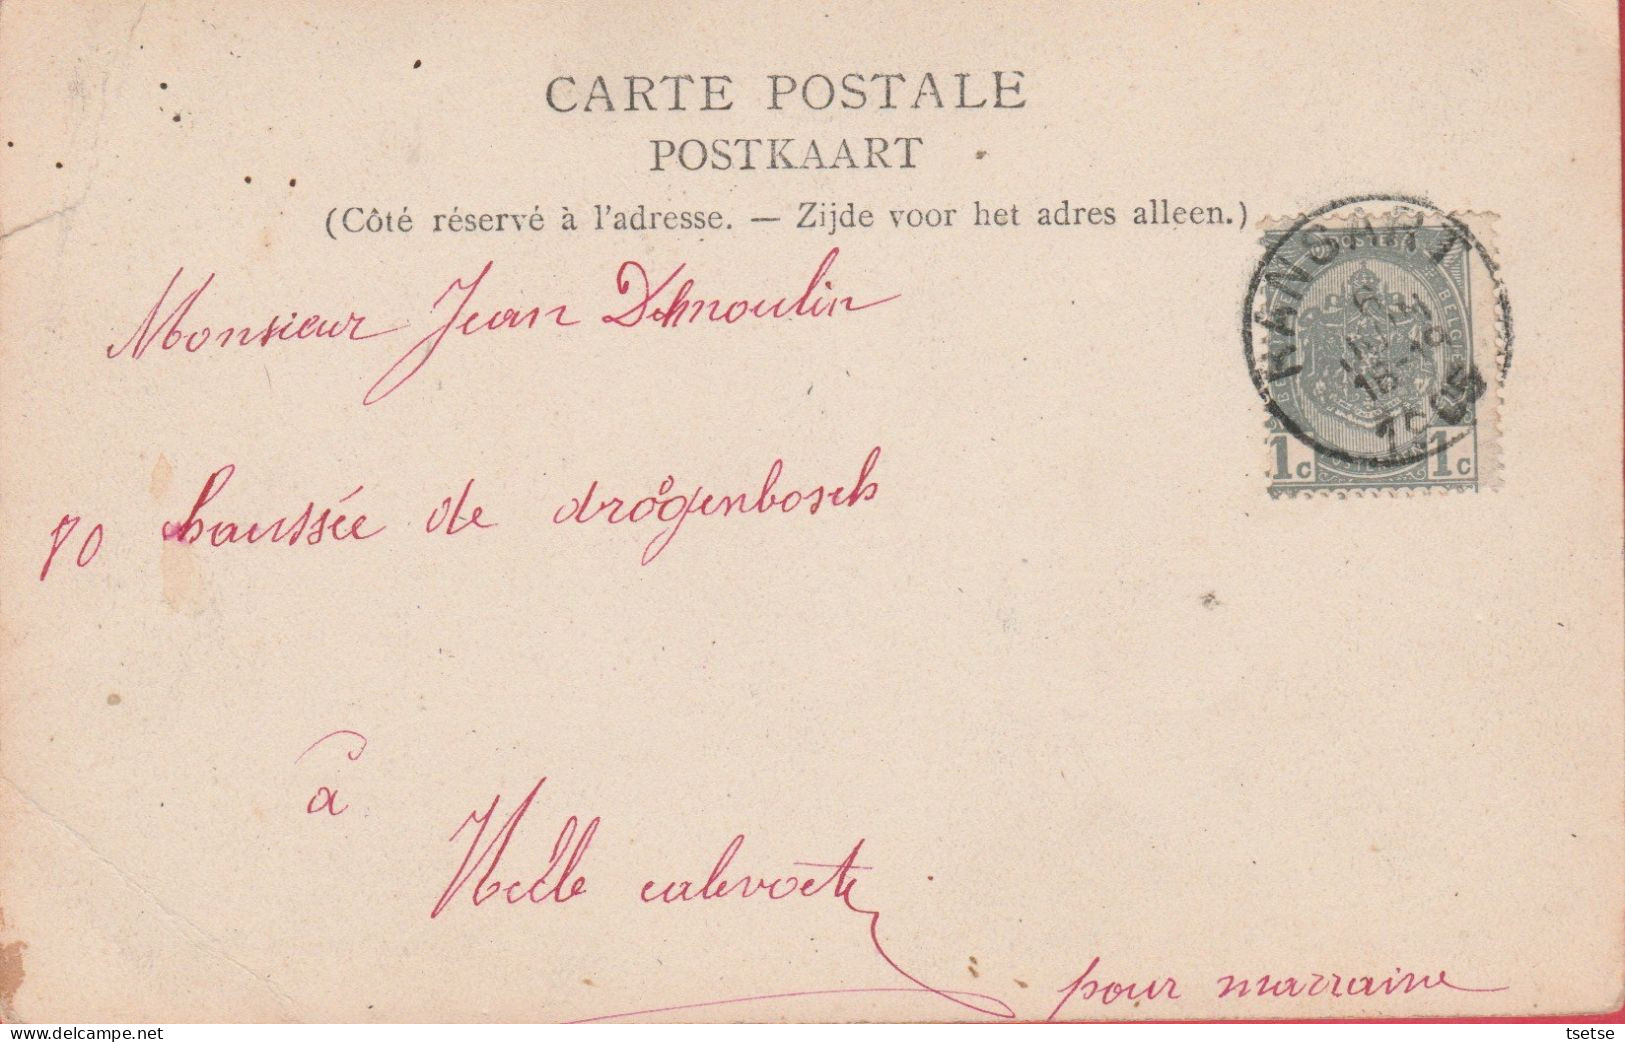 CARTE POSTALE
POSTKAART
(Côté réservé à l'adresse. — Zijde voor het adres alleen.)
RANSART
1905
1c 1c
Monsieur Jean Demoulin
70 chaussée de drogenbosch
à
Uccle calevoet
pour marraine
tsetse